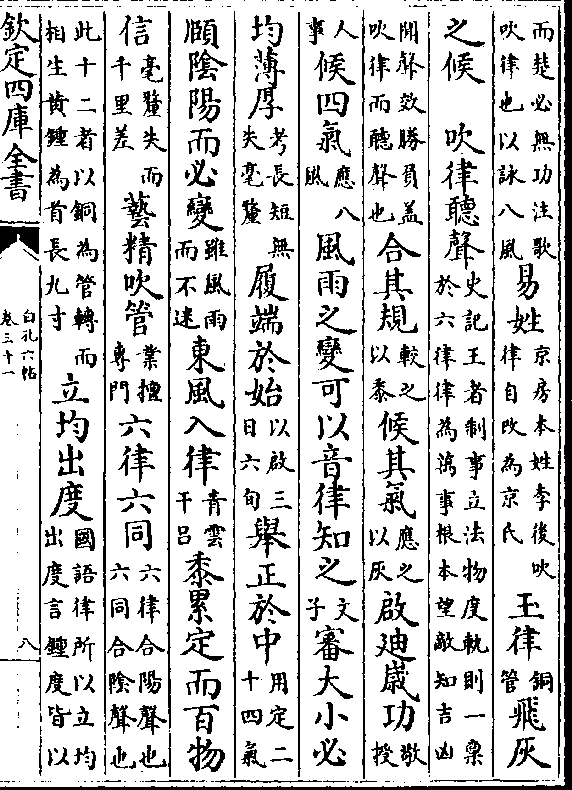 而楚必無功注歌吹律也以詠八風易姓京房本姓李後吹律自改為京氏玉律銅管飛灰
之候　吹律聽聲史記王者制事立法物度軌則一稟於六律律為萬事根本望敵知吉凶
聞聲效勝負蓋吹律而聽聲也合其規較之以黍候其氣應之以灰啟迪歲功敬授
人事候四氣應八風風雨之變可以音律知之文子審大小必
均薄厚考長短無失毫釐履端於始以啟三日六旬舉正於中用定二十四氣
頤陰陽而必變雖風雨而不迷東風入律青雲干呂黍累定而百物
信毫釐失而千里差藝精吹管業擅專門六律六同六律合陽聲也六同合陰聲也
此十二者以銅為管轉而相生黃鍾為首長九寸立均出度國語律所以立均出度言鍾度皆以
欽定四庫全書
白孔六帖
卷三十一
八